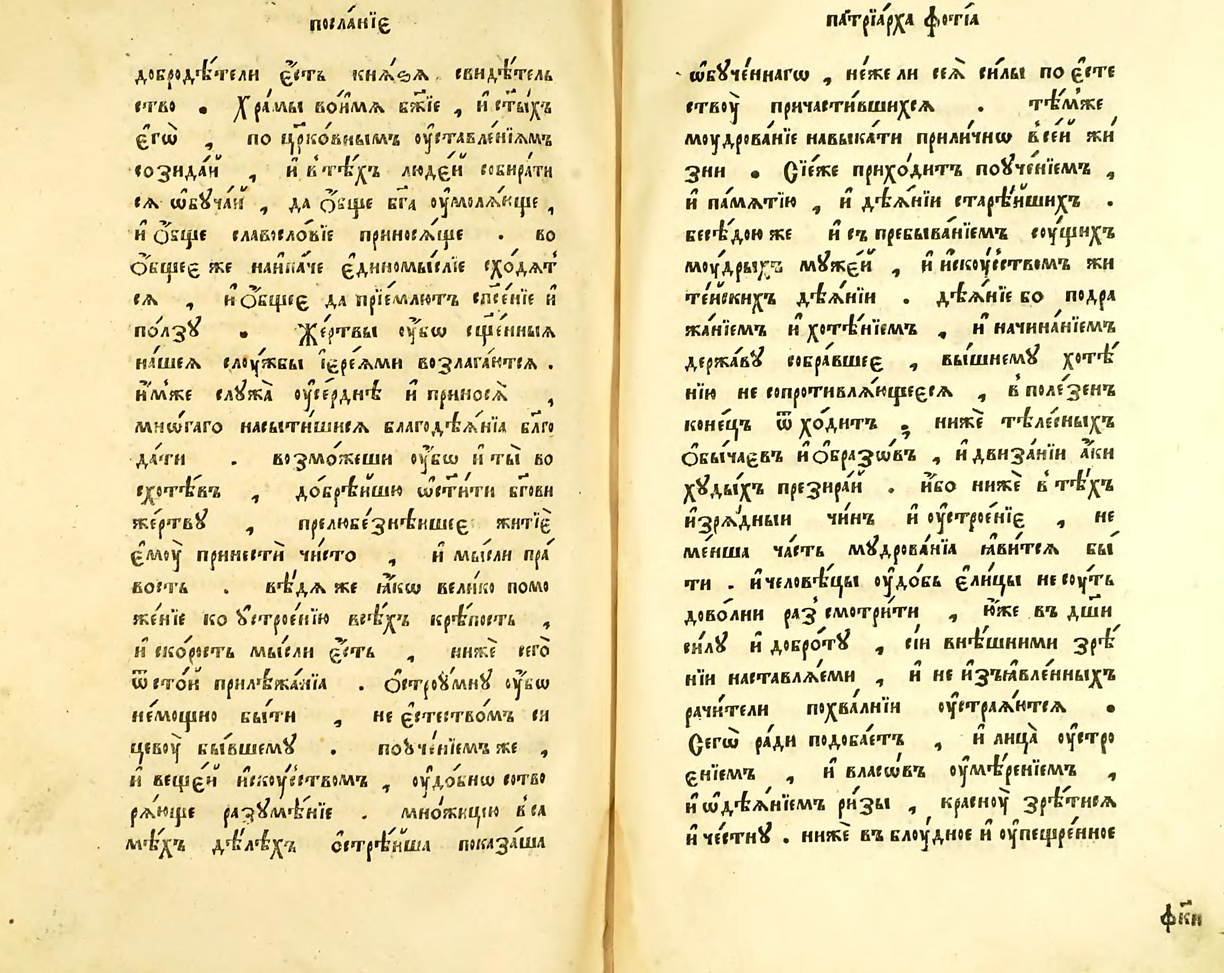 посла́нїє
добродѣ́тели є҆́сть кнѧ́зѧ свидѣ́тель
ство . Хра́мы вои́мѧ бж҃їе , и҆ ст҃ы́хъ
є҆гѡ̀ , по цр҃ко́внымъ оу҆ставле́нїѧмъ
созида́й , и҆ в̾тѣ́хъ люде́й собира́ти
сѧ ѡ҆буча́й , да ѻ҆́бще бг҃а оу҆молѧ́юще ,
и҆ ѻ҆́бще славосло́вїе приносѧ́ще . во
ѻ҆́бщеє же наипа́че є҆диномы́слїе схо́дѧт̾
сѧ , и҆ ѻ҆́бщеє да прїе́млютъ спс҃е́нїе и҆
по́лзꙋ . Же́ртвы оу҆́бѡ сщ҃е́нныѧ
на́шеѧ слоу́жбы і҆єре́ѧми возлага́ютсѧ .
и҆́м̾же слꙋжа̀ оу҆се́рднѣ и҆ приносѧ̀ ,
мно́гаго насы́тишисѧ благодѣѧ́нїа бл҃го
да́ти . возмо́жеши оу҆́бѡ и҆ ты̀ во
схотѣ́въ , добрѣ́йшꙋю ѡ҆ст҃и́ти бг҃ови
же́ртвꙋ , прелюбе́знѣишеє житїѐ
є҆моу̀ принестѝ чи́сто , и҆ мы́сли пра́
вость . вѣ́дѧ же ꙗ҆́кѡ вели́ко помо
же́нїе ко ᲂу҆строе́нїю всѣ́хъ крѣ́пость ,
и҆ ско́рость мы́сли є҆́сть , нижѐ сего̀
ѿстои́ прилѣжа́нїа . ѻ҆строу́мнꙋ оу҆́бѡ
не́мощно бы́ти , не є҆стество́мъ си
цевоу̀ бы́вшемꙋ . поꙋче́нїемъ же ,
и҆ веще́й и҆скоу́сствомъ , оу҆до́бнѡ сотво
рѧ́юще разꙋмѣ́нїе . мно́жицею в̾са
мѣ́хъ дѣ́лѣхъ ѻ҆стрѣ́йша показа́ша
патрїа́рха фѡ́тїа
ѡ҆бꙋче́ннагѡ , не́же ли сеѧ̀ си́лы по є҆сте
ствоу̀ причасти́вшихсѧ . тѣ́м̾же
моудрова́нїе навыка́ти прили́чнѡ в̾се́й жи́
зни . Сїе́же прихо́дитъ поꙋче́нїемъ ,
и҆ па́мѧтїю , и҆ дѣѧ́нїи старѣ́йшихъ .
бесѣ́дою же и҆ съ пребыва́нїемъ соу́щихъ
моу́дрыхъ мꙋже́й , и҆ и҆скоу́сствомъ жи
те́йскихъ дѣѧ́нїи . дѣѧ́нїе бо подра
жа́нїемъ и҆ хотѣ́нїемъ , и҆ начина́нїемъ
держа́вꙋ собра́вшеє , вы́шнемꙋ хотѣ́
нїю не сопротивлѧ́ющеесѧ , в̾поле́зенъ
коне́цъ ѿхо́дитъ , нижѐ тѣле́сныхъ
ѻ҆бы́чаєвъ и҆ ѻ҆́бразѡвъ , и҆ двиза́нїи а҆́ки
хꙋды́хъ презира́й . и҆́бо нижѐ в̾тѣ́хъ
и҆зрѧ́дныи чи́нъ и҆ оу҆строе́нїє , не
ме́нша ча́сть мꙋдрова́нїа ꙗ҆ви́тсѧ бы́
ти . и҆ человѣ́цы оу҆до́бь є҆ли́цы не соу́ть
дово́лни раз̾смотри́ти , ю҆́же въ дш҃и
си́лꙋ и҆ добро́тꙋ , сїи внѣ́шними зрѣ́
нїи наставлѧ́еми , и҆ не и҆з̾ꙗвле́нныхъ
рачи́тели похва́лнїи оу҆страѧ́ютсѧ .
Сегѡ̀ ра́ди подоба́етъ , и҆ лица̀ оу҆стро
є́нїемъ , и҆ власѡ́въ оу҆мѣ́ренїемъ ,
и҆ ѡ҆дѣѧ́нїемъ ри́зы , красноу̀ зрѣ́тисѧ
и҆ че́стнꙋ . нижѐ въ блоу́дное и҆ оу҆пещре́нное
фк҃и